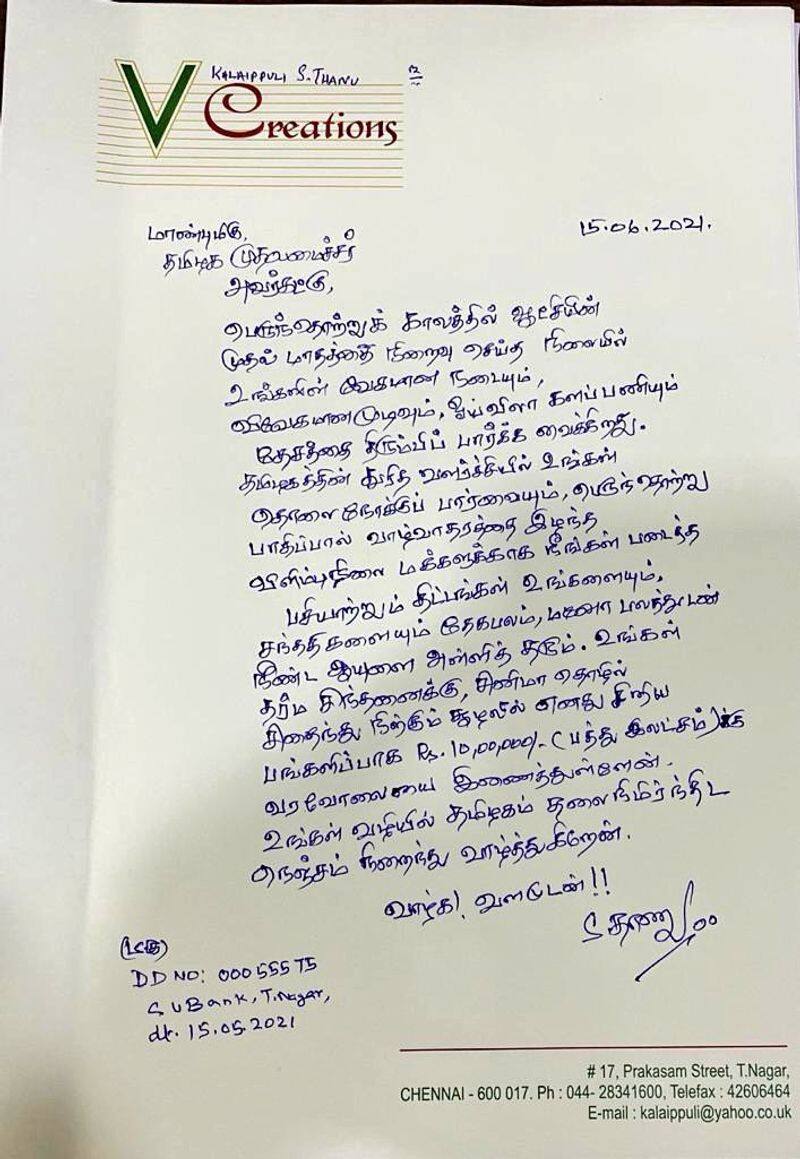 KALAIPPULI S. THANU
V Creations
15.06.2021.
மாண்புமிகு,
தமிழக முதலமைச்சர்
அவர்கட்கு,
பெருந்தொற்றுக் காலத்தில் ஆட்சியின்
முதல் மாதத்தை நிறைவு செய்த நிலையில்
உங்களின் வேகமான நடையும்,
விவேகமானமுடிவும், ஓய்விலா களப்பணியும்
தேசத்தை திரும்பிப் பார்க்க வைக்கிறது.
தமிழகத்தின் துரித வளர்ச்சியில் உங்கள்
தொலைநோக்குப் பார்வையும், பெருந்தொற்று
பாதிப்பால் வாழ்வாதாரத்தை இழந்த
விளிம்புநிலை மக்களுக்காக நீங்கள் படைத்த
பசியாற்றும் திட்டங்கள் உங்களையும்,
சந்ததிகளையும் தேகபலம், மனோ பலத்துடன்
நீண்ட ஆயுளை அள்ளித் தரும். உங்கள்
தர்ம சிந்தனைக்கு, சினிமா தொழில்
சிதைந்து நிற்கும் சூழலில் எனது சிறிய
பங்களிப்பாக Rs. 10,00,000/- (பத்து இலட்சம்)க்கு
வரவோலையை இணைத்துள்ளேன்.
உங்கள் வழியில் தமிழகம் தலைநிமிர்ந்திட
நெஞ்சம் நிறைந்து வாழ்த்துகிறேன்.
வாழ்க! வளமுடன்!!
S தாணு
DD NO: 000 555 75
SUBank, T.Nagar,
dt. 15.05.2021
# 17, Prakasam Street, T.Nagar,
CHENNAI - 600 017. Ph : 044- 28341600, Telefax : 42606464
E-mail : kalaippuli@yahoo.co.uk